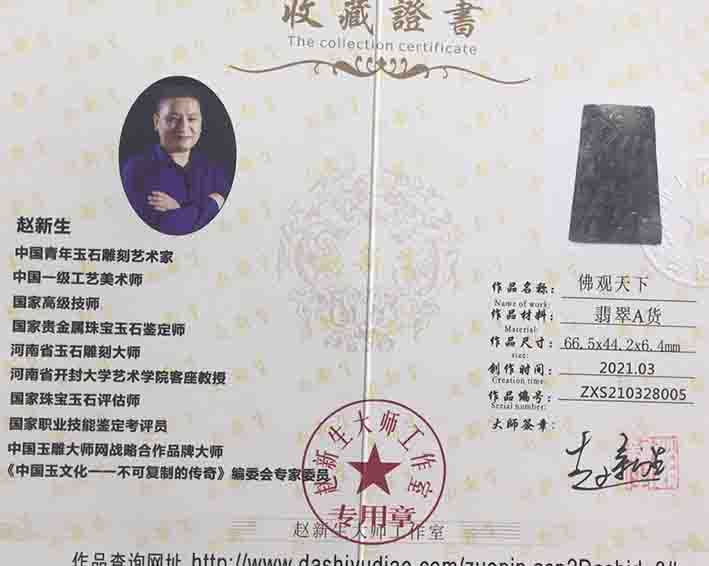 收藏證書
The collection certificate
赵新生
中国青年玉石雕刻艺术家
中国一级工艺美术师
国家高级技师
国家贵金属珠宝玉石鉴定师
河南省玉石雕刻大师
河南省开封大学艺术学院客座教授
国家珠宝玉石评估师
国家职业技能鉴定考评员
中国玉雕大师网战略合作品牌大师
《中国玉文化——不可复制的传奇》编委会专家委员
作品名称： 佛观天下
Name of work:
作品材料： 翡翠A货
Material:
作品尺寸： 66.5x44.2x6.4mm
size:
创作时间： 2021.03
Creation time:
作品编号： ZXS210328005
Serial number:
大师签章：
赵新生
赵新生大师工作室
专用章
赵新生大师工作室
作品查询网址 http://www.dashiyudiao.com/zuopin.asp?Dashid=